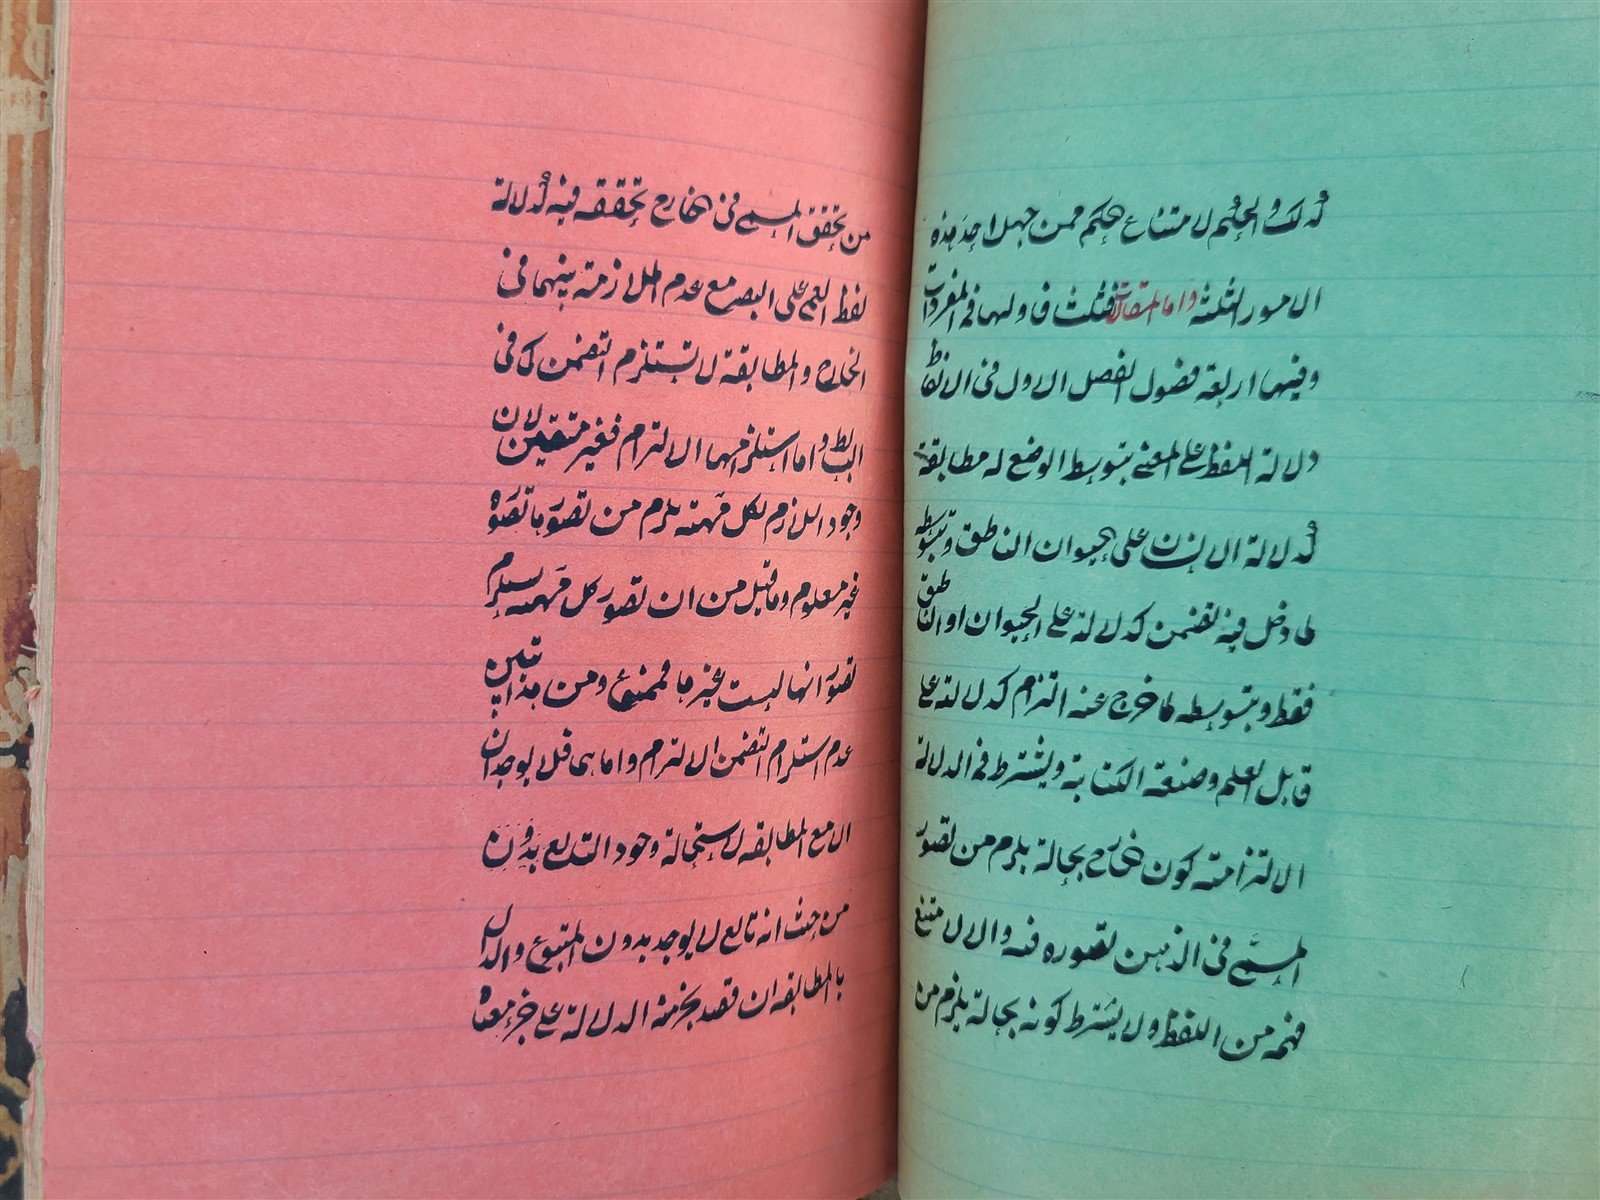 ذلك والحكم لامتناع الحكم ممن جهل احد هذه
الامور الثلثة واما المقالات فثلث فاولها فى المفردات
وفيها اربعة فصول الفصل الاول فى الالفاظ
دلالة اللفظ على المعنى بتوسط الوضع له مطابقة
كدلالة الانسان على الحيوان الناطق وبتوسطه
لما دخل فيه تضمن كدلالته على الحيوان او الناطق
فقط وبتوسطه لما خرج عنه التزام كدلالته على
قابل العلم وصنعة الكتابة ويشترط فى الدلالة
الالتزامية كون الخارج بحالة يلزم من تصور
المسمى فى الذهن تصوره فيه والا لامتنع
فهمه من اللفظ ولا يشترط كونه بحالة يلزم من
من تحقق المسمى فى الخارج تحققه فيه كدلالة
لفظ العمى على البصر مع عدم الملازمة بينهما فى
الخارج والمطابقة لا تستلزم التضمن كما فى
البسائط واما استلزامها الالتزام فغير متيقن لان
وجود اللازم لكل مهية يلزم من تصورها تصوره
غير معلوم وما قيل من ان تصور كل مهية يستلزم
تصور انها ليست غيرها فممنوع ومن هذا تبين
عدم استلزام التضمن الالتزام واما هما فلا يوجدان
الا مع المطابقة لاستحالة وجود التابع بدون
من حيث انه تابع لا يوجد بدون المتبوع والدال
بالمطابقه ان قصد بجزئه الدلالة على جزء معناه